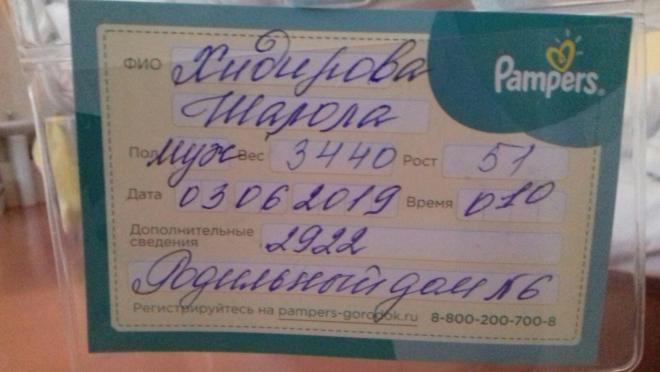 ФИО Хидирова
Pampers®
Шарола
Пол муж Вес 3440 Рост 51
Дата 03 06 2019 Время 010
Дополнительные
сведения 2922
Родильный дом №6
Регистрируйтесь на pampers-gorodok.ru 8-800-200-700-8